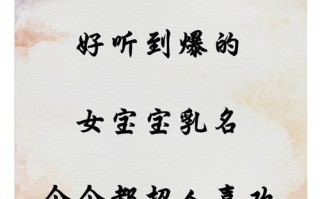 好听到爆的
女宝宝乳名
个个都招人喜欢